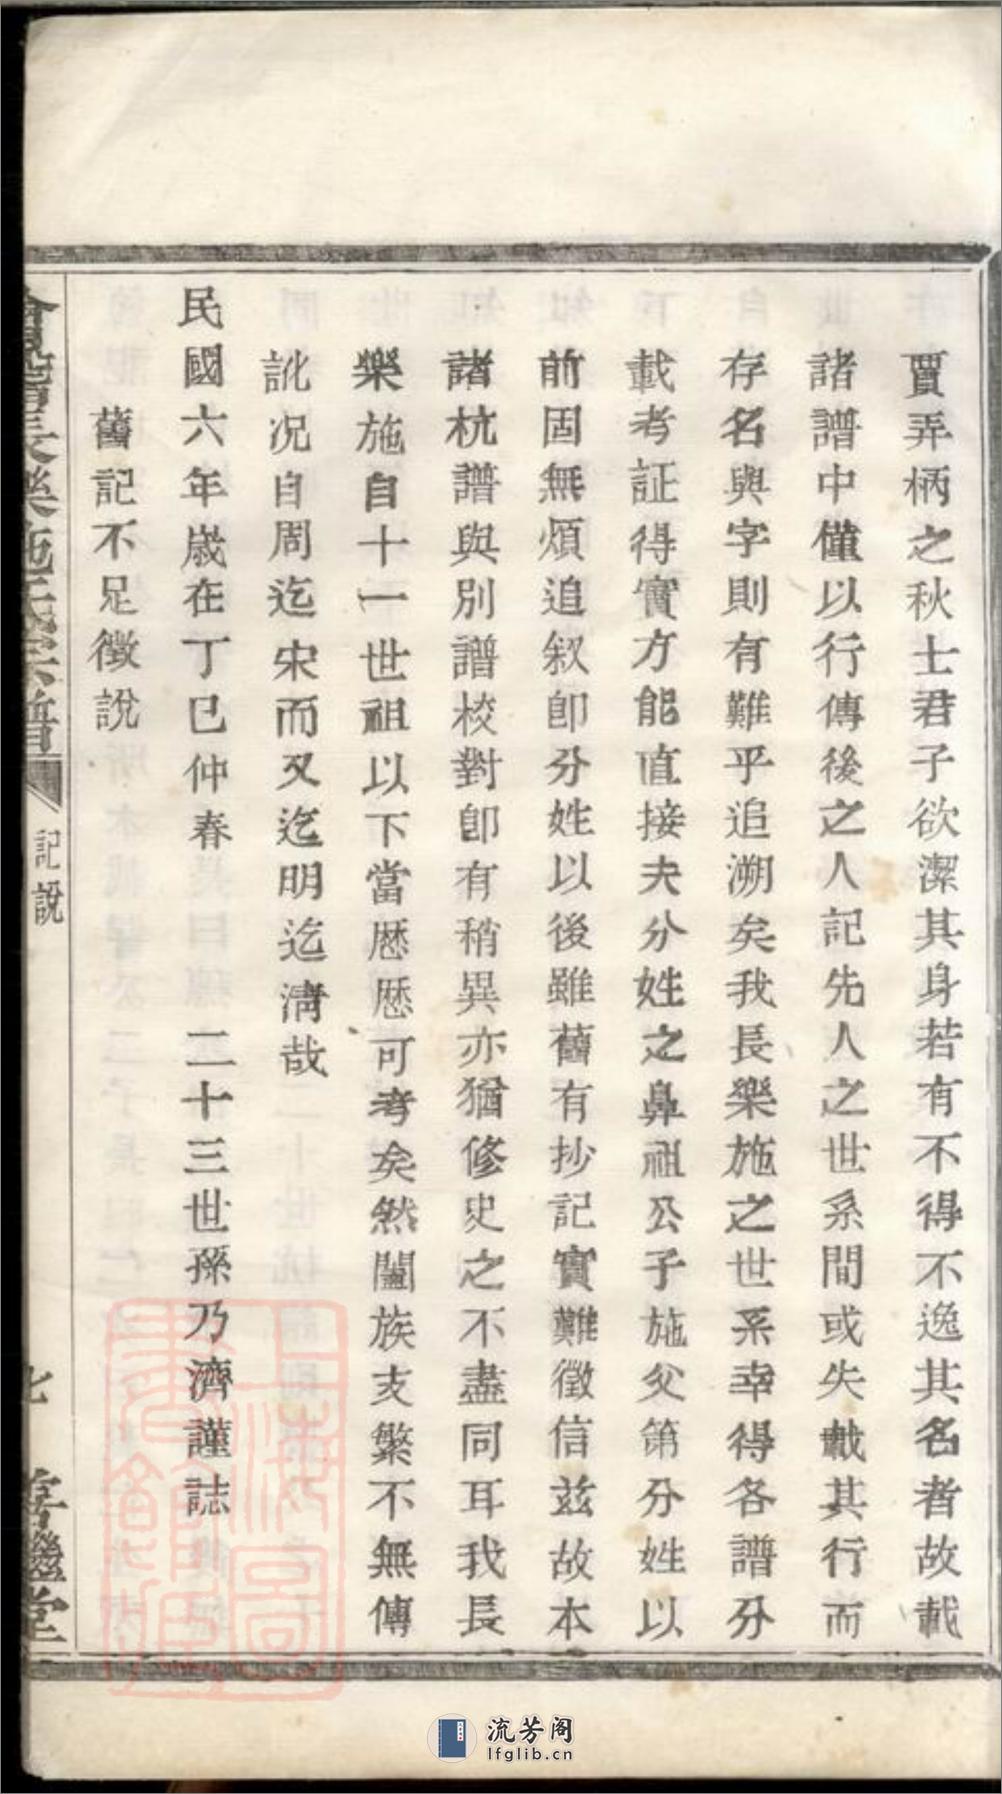 賈弄柄之秋士君子欲潔其身若有不得不逸其名者故載
諸譜中僅以行傳後之人記先人之世系間或失載其行而
存名與字則有難乎追溯矣我長樂施之世系幸得各譜分
載考証得實方能直接夫分姓之鼻祖公子施父第分姓以
前固無煩追叙卽分姓以後雖舊有抄記實難徵信兹故本
諸杭譜與別譜校對卽有稍異亦猶修史之不盡同耳我長
樂施自十一世祖以下當歷歷可考矣然闔族支繁不無傳
訛况自周迄宋而又迄明迄淸哉
民國六年歲在丁巳仲春 二十三世孫乃濟謹誌
舊記不足徵說
會稽長樂施氏宗譜 記說 七 善繼堂
上海圖書館藏
流芳阁
lfglib.cn